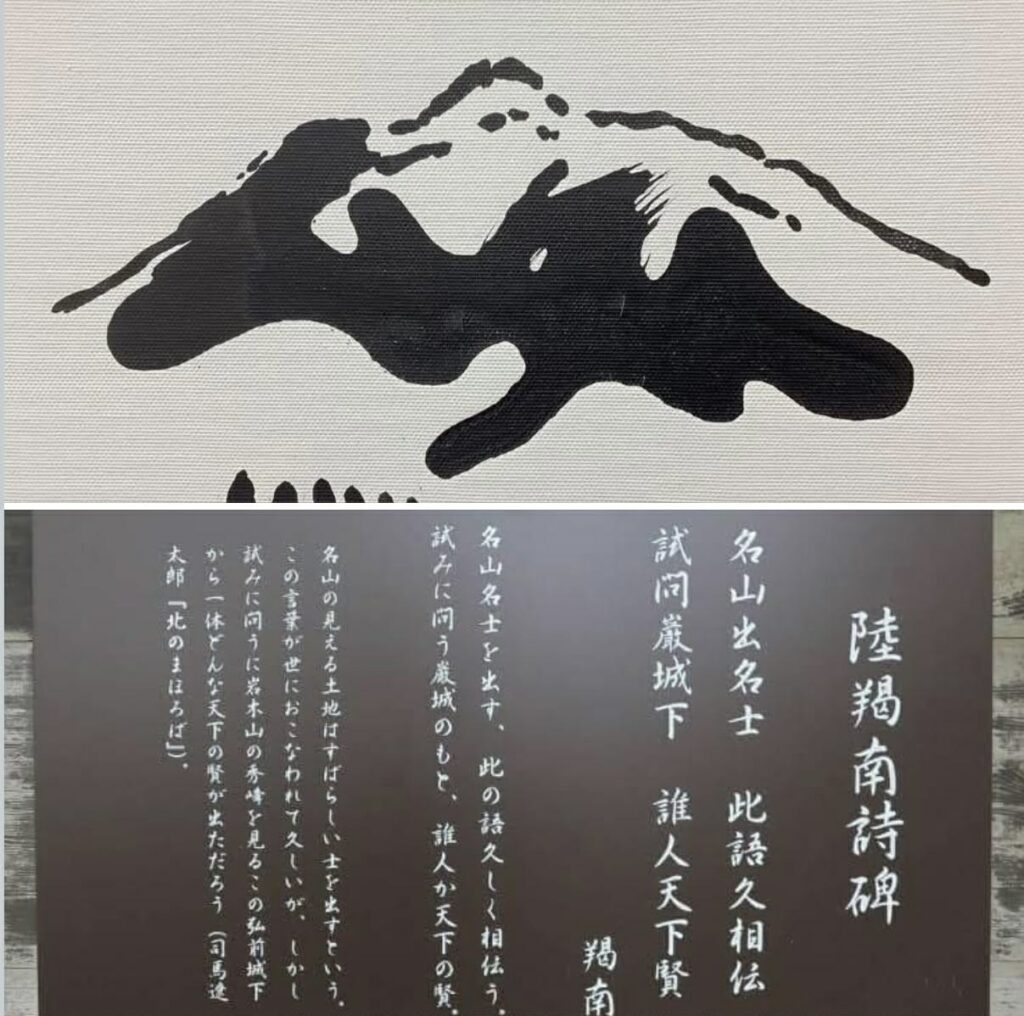 陸羯南詩碑
名山出名士　此語久相伝
試問巌城下　誰人天下賢
羯南
名山名士を出す、此の語久しく相伝う。
試みに問う巌城のもと、誰人か天下の賢。
名山の見える土地はすばらしい士を出すという。
この言葉が世におこなわれて久しいが、しかし
試みに問うに岩木山の秀峰を見るこの弘前城下
から一体どんな天下の賢が出ただろう（司馬遼
太郎『北のまほろば』）。